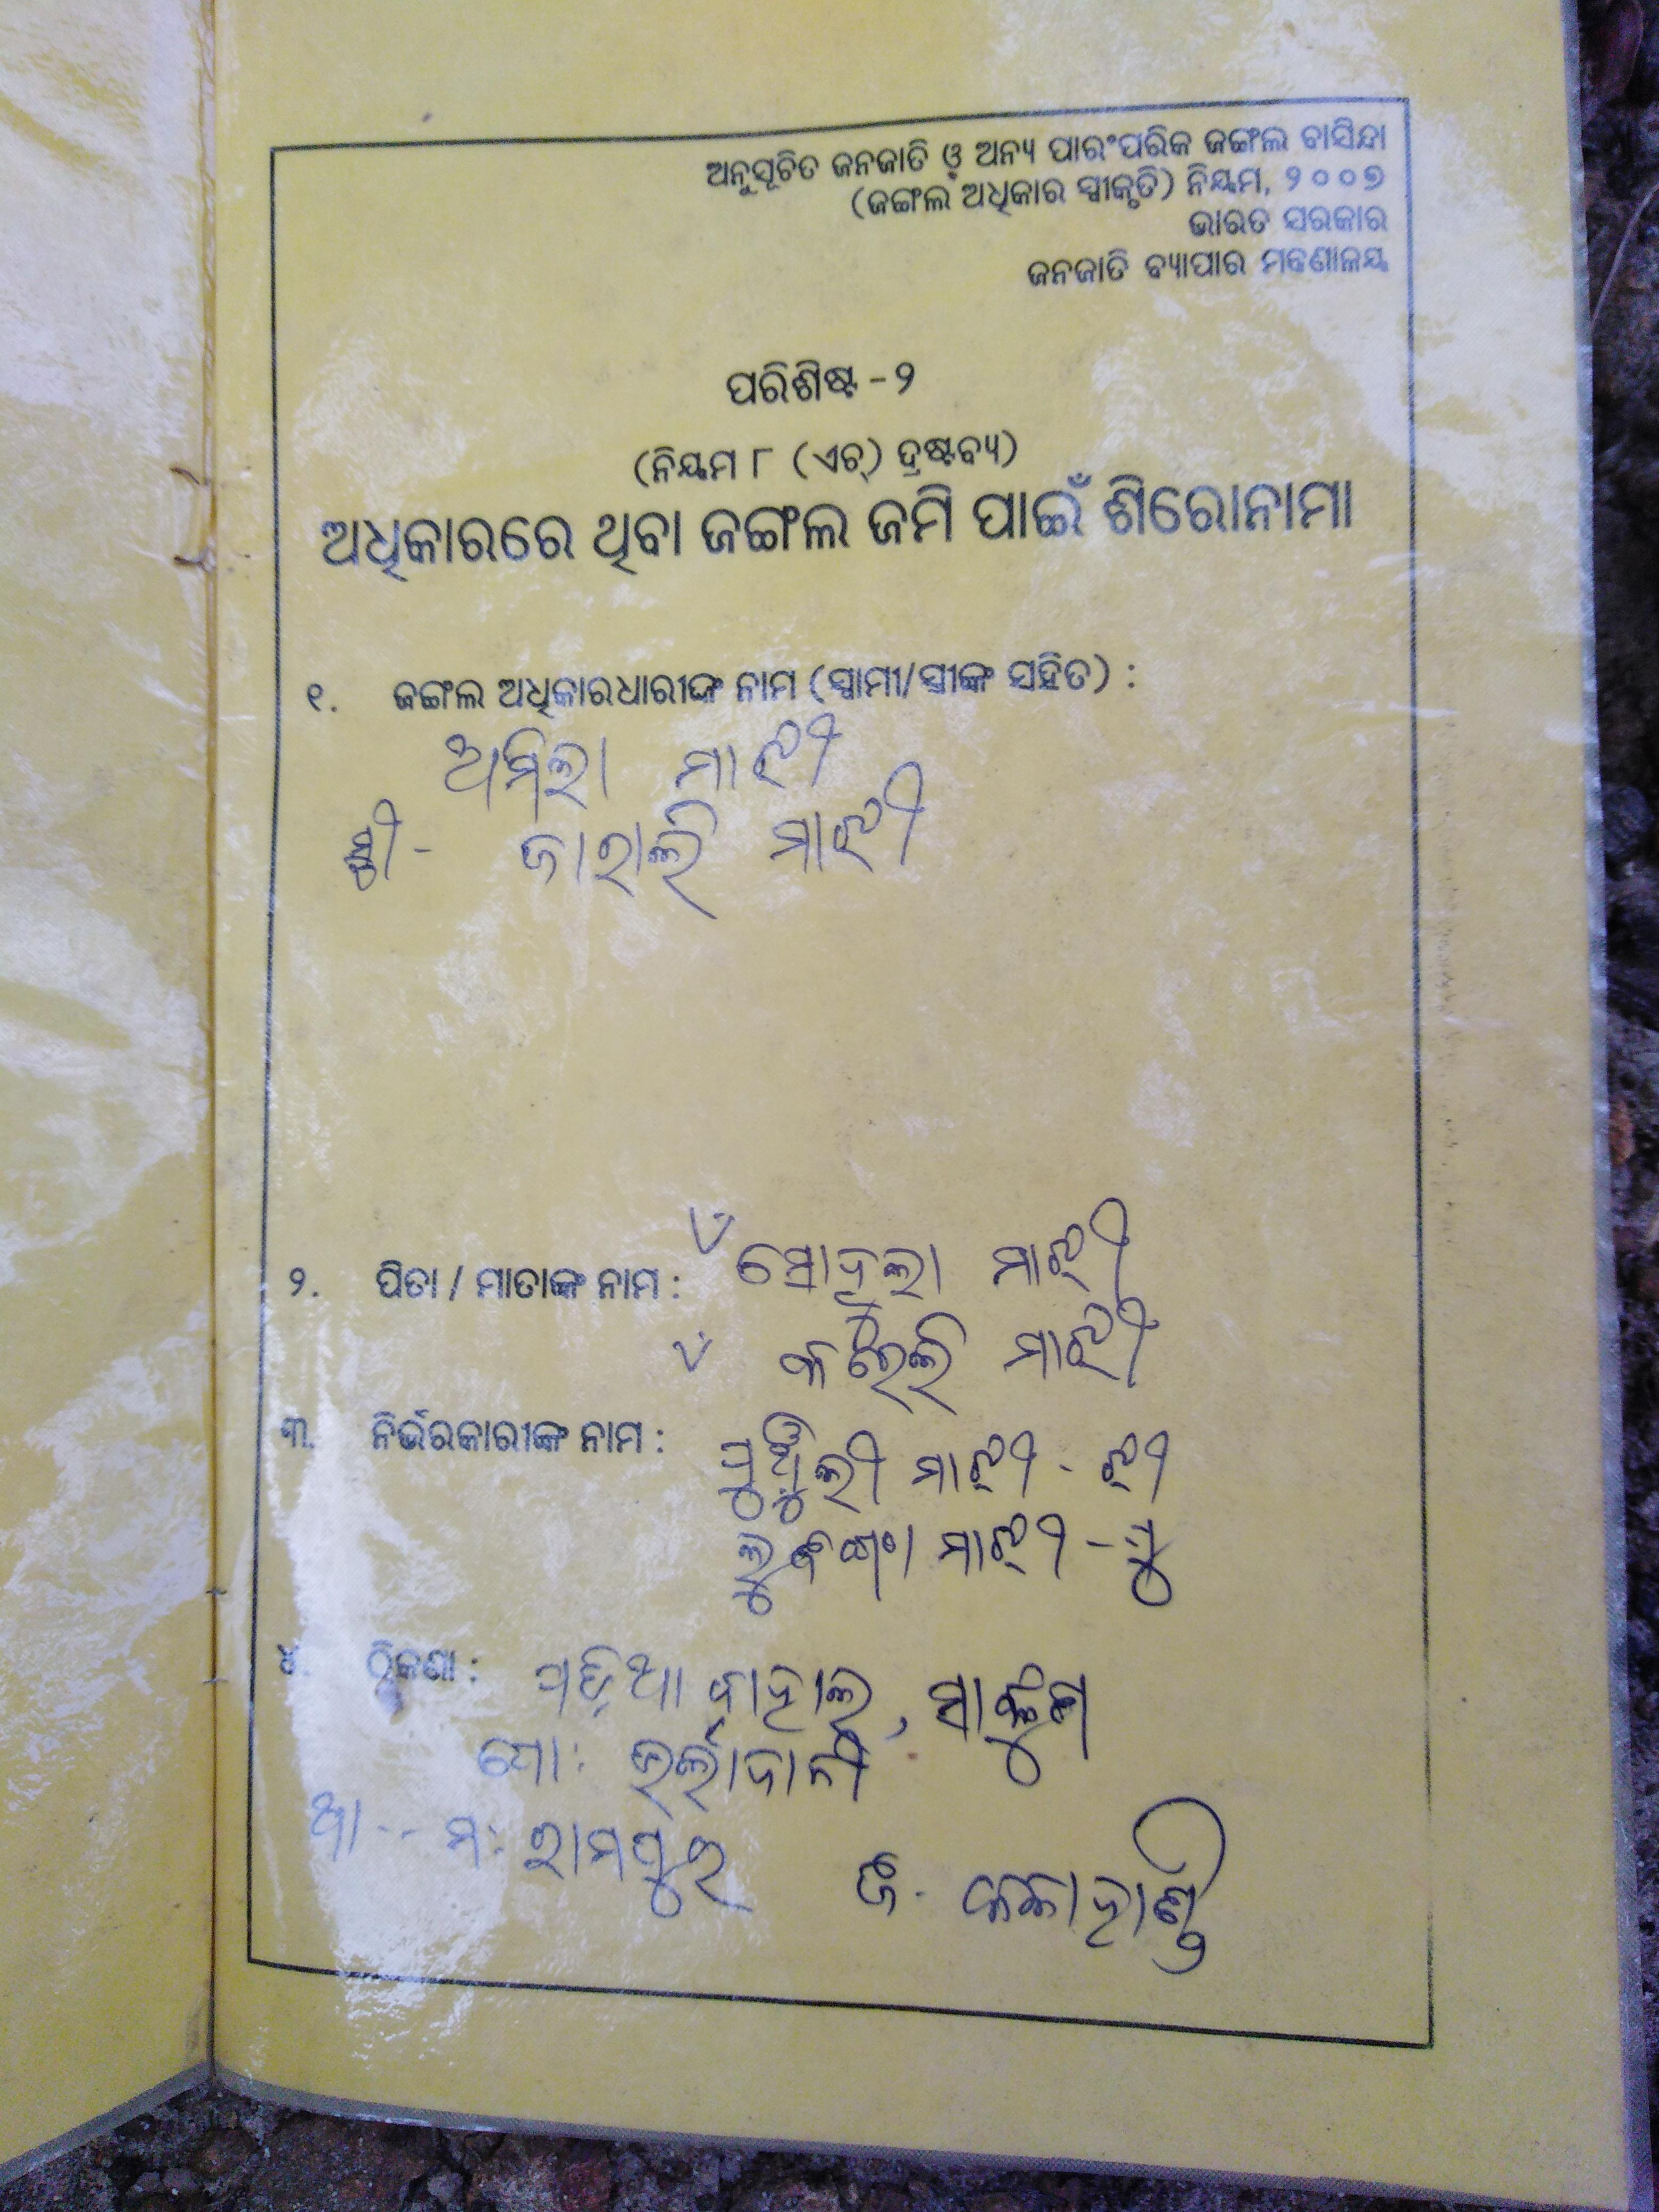 ଅନୁସୂଚିତ ଜନଜାତି ଓ ଅନ୍ୟ ପାରଂପରିକ ଜଙ୍ଗଲ ବାସିନ୍ଦା
(ଜଙ୍ଗଲ ଅଧିକାର ସ୍ୱୀକୃତି) ନିୟମ, ୨୦୦୭
ଭାରତ ସରକାର
ଜନଜାତି ବ୍ୟାପାର ମନ୍ତ୍ରଣାଳୟ
ପରିଶିଷ୍ଟ - ୨
(ନିୟମ ୮ (ଏଚ୍) ଦ୍ରଷ୍ଟବ୍ୟ)
ଅଧିକାରରେ ଥିବା ଜଙ୍ଗଲ ଜମି ପାଇଁ ଶିରୋନାମା
୧. ଜଙ୍ଗଲ ଅଧିକାରଧାରୀଙ୍କ ନାମ (ସ୍ୱାମୀ/ସ୍ତ୍ରୀଙ୍କ ସହିତ) :
ମାଝୀ
ସ୍ତ୍ରୀ - ଜାରାଲି ମାଝୀ
୨. ପିତା / ମାତାଙ୍କ ନାମ : ମାଝୀ
ମାଝୀ
୩. ନିର୍ଭରକାରୀଙ୍କ ନାମ : ମାଝୀ - ଝୀ
ମାଝୀ - ପୁ
୪. ଠିକଣା : ପଡ଼ିଆ ବାହାଲ,
ପୋ:
ଥା -- ମ: ରାମପୁର ଜି. କଳାହାଣ୍ଡି